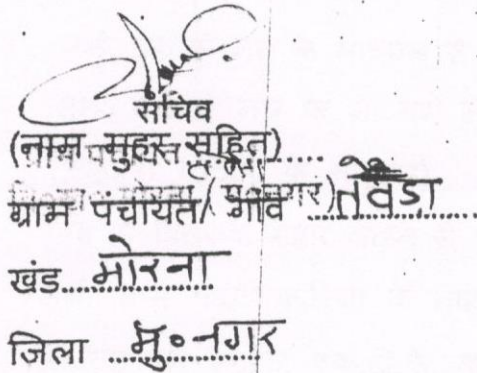 सचिव
(नाम मुहर सहित)
ग्राम पंचायत/ गांव तेवडा
खंड मोरना
जिला मु॰नगर